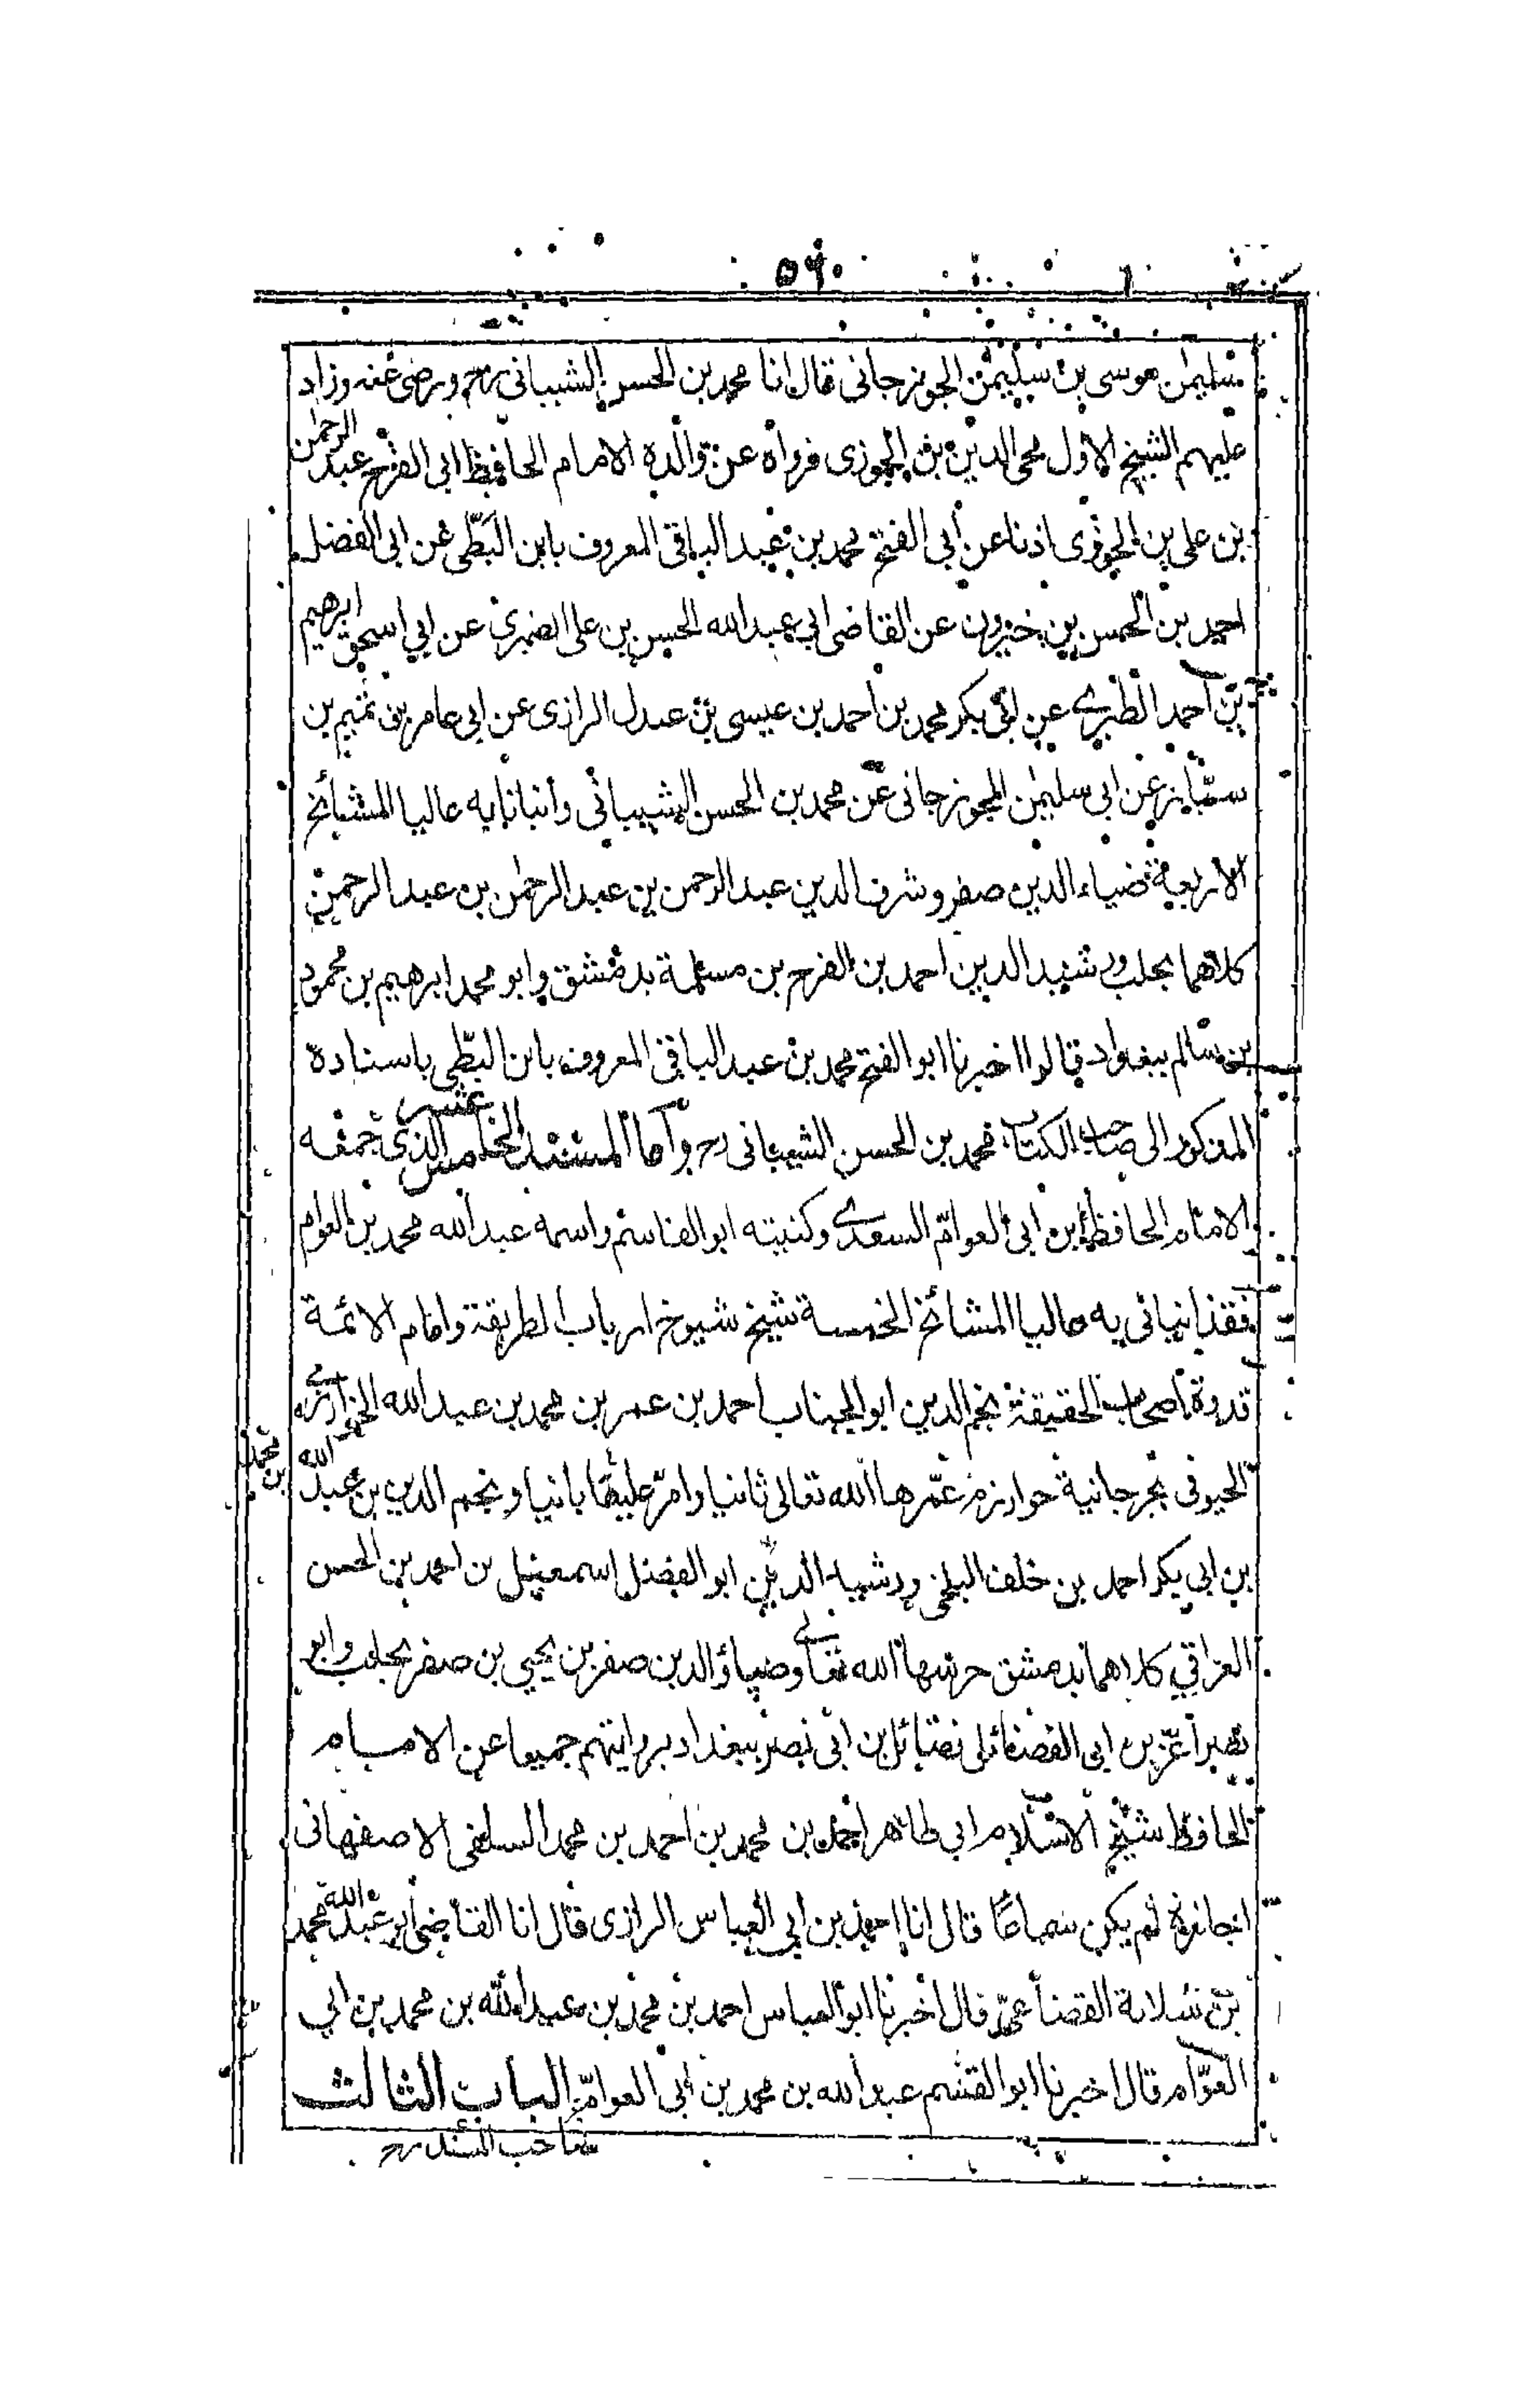 ٥٦٠
سليمٰن موسى بن سليمٰن الجوزجانى قال انا محمد بن الحسن الشيبانى رح ورضى عنه وزاد
عليهم الشيخ الاول محى الدين بن الجوزى فرواه عن والده الامام الحافظ ابى الفرح عبد الرحمٰن
بن على بن الجوزى اذنا عن أبى الفتح محمد بن عبد الباقى المعروف بابن البَطّى عن ابى الفضل
احمد بن الحسن بن خيرون عن القاضى ابى عبد الله الحسين بن على الصَيمرى عن ابى اسحٰق ابرهيم
بن احمد الطبرى عن ابى بكر محمد بن احمد بن عيسى بن عبدل الرازى عن ابى عامر بن تميم بن
عن ابى سليمٰن الجوزجانى عن محمد بن الحسن الشيبانى وانبانا به عاليا المشائخ
الاربعة ضياء الدين صقر وشرف الدين عبد الرحمن بن عبد الرحمٰن بن عبد الرحمن
كلاهما بحلب ورشيد الدين احمد بن الفرح بن مسلمة بدمشق وابو محمد ابرهيم بن محمود
بن سالم ببغداد قالوا اخبرنا ابو الفتح محمد بن عبد الباقى المعروف بابن البَطّى باسناده
المذكور الى صاحب الكتاب محمد بن الحسن الشيبانى رح وأما المسند الخامس عشر الذى جمعه
الامام الحافظ ابن ابى العوام السعدى وكنيته ابو القاسم واسمه عبد الله محمد بن العوام
فقد انبانى به عاليا المشائخ الخمسة شيخ شيوخ ارباب الطريقة وامام الائمة
قدوة اصحاب الحقيقة نجم الدين ابو الجناب احمد بن عمر بن محمد بن عبد الله الخوارزمى
الخيوقى بجرجانية خوارزم عمّرها الله تعالى ثانيا وامّر عليها بانيا ونجم الدين بن عبد الله
بن محمد
بن ابى بكر احمد بن خلف البلخى ورشيد الدين ابو الفضل اسمعيل بن احمد بن الحسن
العراقي كلاهما بدمشق حرسها الله تعالى وضياؤ الدين صقر بن يحيى بن صقر بحلب وابو
نصر أعز بن ابى الفضائل فضائل بن ابى نصر ببغداد بروايتهم جميعا عن الامام
الحافظ شيخ الاسلام ابى طاهر احمد بن محمد بن احمد بن محمد السلفى الاصفهانى
اجازة لم يكن سماعًا قال انا احمد بن ابى العباس الرازى قال انا القاضى ابو عبد الله محمد
بن سلامة القضاعىّ قال اخبرنا ابو العباس احمد بن محمد بن عبد الله بن محمد بن ابي
العوّام قال اخبرنا ابو القٰسم عبد الله بن محمد بن ابى العوامّ الباب الثالث
صاحب المسند رح